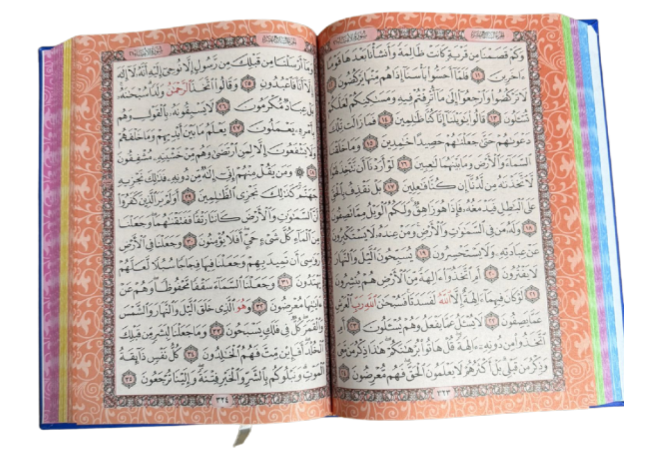 وَكَمْ قَصَمْنَا مِن قَرْيَةٍ كَانَتْ ظَالِمَةً وَأَنشَأْنَا بَعْدَهَا قَوْمًا
ءَاخَرِينَ ١١ فَلَمَّآ أَحَسُّوا۟ بَأْسَنَآ إِذَا هُم مِّنْهَا يَرْكُضُونَ ١٢
لَا تَرْكُضُوا۟ وَٱرْجِعُوٓا۟ إِلَىٰ مَآ أُتْرِفْتُمْ فِيهِ وَمَسَـٰكِنِكُمْ لَعَلَّكُمْ
تُسْـَٔلُونَ ١٣ قَالُوا۟ يَـٰوَيْلَنَآ إِنَّا كُنَّا ظَـٰلِمِينَ ١٤ فَمَا زَالَت تِّلْكَ
دَعْوَىٰهُمْ حَتَّىٰ جَعَلْنَـٰهُمْ حَصِيدًا خَـٰمِدِينَ ١٥ وَمَا خَلَقْنَا
ٱلسَّمَآءَ وَٱلْأَرْضَ وَمَا بَيْنَهُمَا لَـٰعِبِينَ ١٦ لَوْ أَرَدْنَآ أَن نَّتَّخِذَ لَهْوًا
لَّٱتَّخَذْنَـٰهُ مِن لَّدُنَّآ إِن كُنَّا فَـٰعِلِينَ ١٧ بَلْ نَقْذِفُ بِٱلْحَقِّ
عَلَى ٱلْبَـٰطِلِ فَيَدْمَغُهُۥ فَإِذَا هُوَ زَاهِقٌ وَلَكُمُ ٱلْوَيْلُ مِمَّا تَصِفُونَ
١٨ وَلَهُۥ مَن فِى ٱلسَّمَـٰوَٰتِ وَٱلْأَرْضِ وَمَنْ عِندَهُۥ لَا يَسْتَكْبِرُونَ
عَنْ عِبَادَتِهِۦ وَلَا يَسْتَحْسِرُونَ ١٩ يُسَبِّحُونَ ٱلَّيْلَ وَٱلنَّهَارَ
لَا يَفْتُرُونَ ٢٠ أَمِ ٱتَّخَذُوٓا۟ ءَالِهَةً مِّنَ ٱلْأَرْضِ هُمْ يُنشِرُونَ
٢١ لَوْ كَانَ فِيهِمَآ ءَالِهَةٌ إِلَّا ٱللَّهُ لَفَسَدَتَا فَسُبْحَـٰنَ ٱللَّهِ رَبِّ ٱلْعَرْشِ
عَمَّا يَصِفُونَ ٢٢ لَا يُسْـَٔلُ عَمَّا يَفْعَلُ وَهُمْ يُسْـَٔلُونَ ٢٣ أَمِ
ٱتَّخَذُوا۟ مِن دُونِهِۦٓ ءَالِهَةً قُلْ هَاتُوا۟ بُرْهَـٰنَكُمْ هَـٰذَا ذِكْرُ مَن مَّعِىَ
وَذِكْرُ مَن قَبْلِى بَلْ أَكْثَرُهُمْ لَا يَعْلَمُونَ ٱلْحَقَّ فَهُم مُّعْرِضُونَ ٢٤
٣٢٣
وَمَآ أَرْسَلْنَا مِن قَبْلِكَ مِن رَّسُولٍ إِلَّا نُوحِىٓ إِلَيْهِ أَنَّهُۥ لَآ إِلَـٰهَ
إِلَّآ أَنَا۠ فَٱعْبُدُونِ ٢٥ وَقَالُوا۟ ٱتَّخَذَ ٱلرَّحْمَـٰنُ وَلَدًا سُبْحَـٰنَهُۥ
بَلْ عِبَادٌ مُّكْرَمُونَ ٢٦ لَا يَسْبِقُونَهُۥ بِٱلْقَوْلِ وَهُم
بِأَمْرِهِۦ يَعْمَلُونَ ٢٧ يَعْلَمُ مَا بَيْنَ أَيْدِيهِمْ وَمَا خَلْفَهُمْ
وَلَا يَشْفَعُونَ إِلَّا لِمَنِ ٱرْتَضَىٰ وَهُم مِّنْ خَشْيَتِهِۦ مُشْفِقُونَ
٢٨ وَمَن يَقُلْ مِنْهُمْ إِنِّىٓ إِلَـٰهٌ مِّن دُونِهِۦ فَذَٰلِكَ نَجْزِيهِ
جَهَنَّمَ كَذَٰلِكَ نَجْزِى ٱلظَّـٰلِمِينَ ٢٩ أَوَلَمْ يَرَ ٱلَّذِينَ كَفَرُوٓا۟
أَنَّ ٱلسَّمَـٰوَٰتِ وَٱلْأَرْضَ كَانَتَا رَتْقًا فَفَتَقْنَـٰهُمَا وَجَعَلْنَا
مِنَ ٱلْمَآءِ كُلَّ شَىْءٍ حَىٍّ أَفَلَا يُؤْمِنُونَ ٣٠ وَجَعَلْنَا فِى ٱلْأَرْضِ
رَوَٰسِىَ أَن تَمِيدَ بِهِمْ وَجَعَلْنَا فِيهَا فِجَاجًا سُبُلًا لَّعَلَّهُمْ
يَهْتَدُونَ ٣١ وَجَعَلْنَا ٱلسَّمَآءَ سَقْفًا مَّحْفُوظًا وَهُمْ عَنْ
ءَايَـٰتِهَا مُعْرِضُونَ ٣٢ وَهُوَ ٱلَّذِى خَلَقَ ٱلَّيْلَ وَٱلنَّهَارَ وَٱلشَّمْسَ
وَٱلْقَمَرَ كُلٌّ فِى فَلَكٍ يَسْبَحُونَ ٣٣ وَمَا جَعَلْنَا لِبَشَرٍ مِّن قَبْلِكَ
ٱلْخُلْدَ أَفَإِي۟ن مِّتَّ فَهُمُ ٱلْخَـٰلِدُونَ ٣٤ كُلُّ نَفْسٍ ذَآئِقَةُ
ٱلْمَوْتِ وَنَبْلُوكُم بِٱلشَّرِّ وَٱلْخَيْرِ فِتْنَةً وَإِلَيْنَا تُرْجَعُونَ ٣٥
٣٢٤